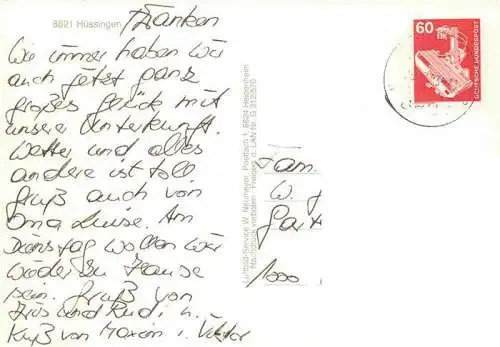 8821 Hüssingen Franken
Wie immer haben wir
auch jetzt ganz
großes Glück mit
unserer Unterkunft.
Wetter und alles
andere ist toll
Gruß auch von
Oma Luise. Am
Dienstag wollen wir
wieder zu Hause
sein. Gruß von
Iris und Rudi u.
Kuß von Maxim i. Viktor
60
DEUTSCHE BUNDESPOST
Luftbild-Service W. Neumeyer, Postfach 1, 8824 Heidenheim
Nachdruck verboten - Freigeg. d. LAN Nr. G 3125/70
Fam.
W. J
Gart
1000